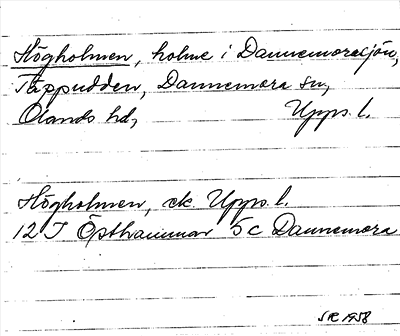 Högholmen, holme i Dannemorasjön,
Täppudden, Dannemora sn,
Olands hd, Upps. l.
Högholmen, ek. Upps. l.
12 I Östhammar 5c Dannemora
SR 1958